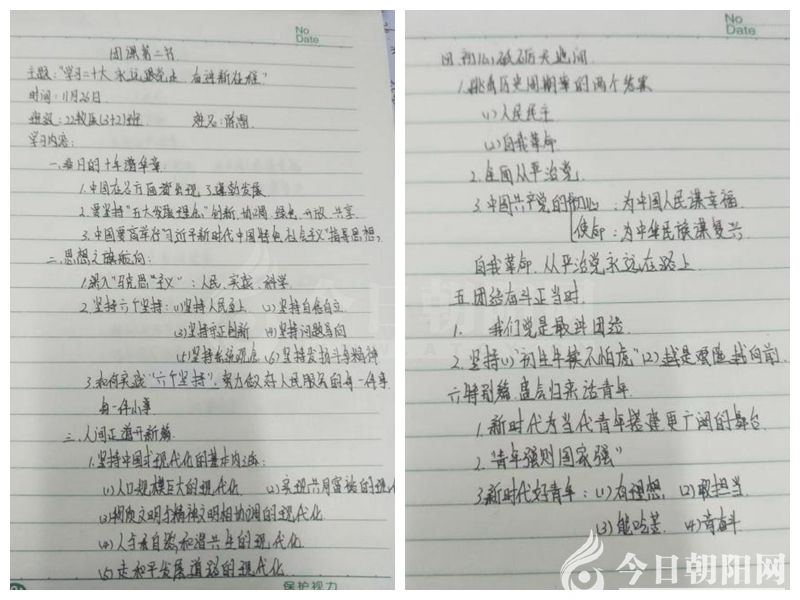 No
Date
团课第二节
主题:"学习二十大 永远跟党走 奋进新征程"
时间:11月26日
班级:22护(3+2)班 姓名:
学习内容:
一.春日的十年
1.中国在各方面 实现了
2.要坚持"五大发展理念":创新 协调 绿色 开放 共享.
3.中国要高举"习近平新时代中国特色社会主义"指导思想,
二.思想之旗 向:
1.深入"马克思主义":人民 实践 科学
2.坚持六个坚持:(1)坚持人民至上 (2)坚持自信自立
(3)坚持守正创新 (4)坚持问题导向
(5)坚持系统观念 (6)坚持
3.如何实践"六个坚持":努力做好人民服务的每一件事
每一件小事
三.人间正道开新篇
1.坚持中国式现代化的基本内涵:
(1)人口规模巨大的现代化 (2)实现共同富裕的现代
(3)物质文明与精神文明相协调的现代化
(4)人与自然和谐共生的现代化
(5)走和平发展道路的现代化
保护视力
No
Date
四.初心砥砺天地间
1.跳出历史周期率的两个答案
(1)人民民主
(2)自我革命
2.全面从严治党
3.中国共产党的初心:为中国人民谋幸福
使命:为中华民族谋复兴
自我革命.从严治党永远在路上
五.团结奋斗正当时
1.我们党是 团结
2.坚持(1)"初生牛犊不怕虎"(2)越是艰险越向前
六.特别篇.盛会归来话青年
1.新时代为当代青年搭建更广阔的舞台
2."青年强则国家强"
3.新时代好青年:(1)有理想 (2)敢担当
(3)能吃苦 (4)肯奋斗
今日朝阳网